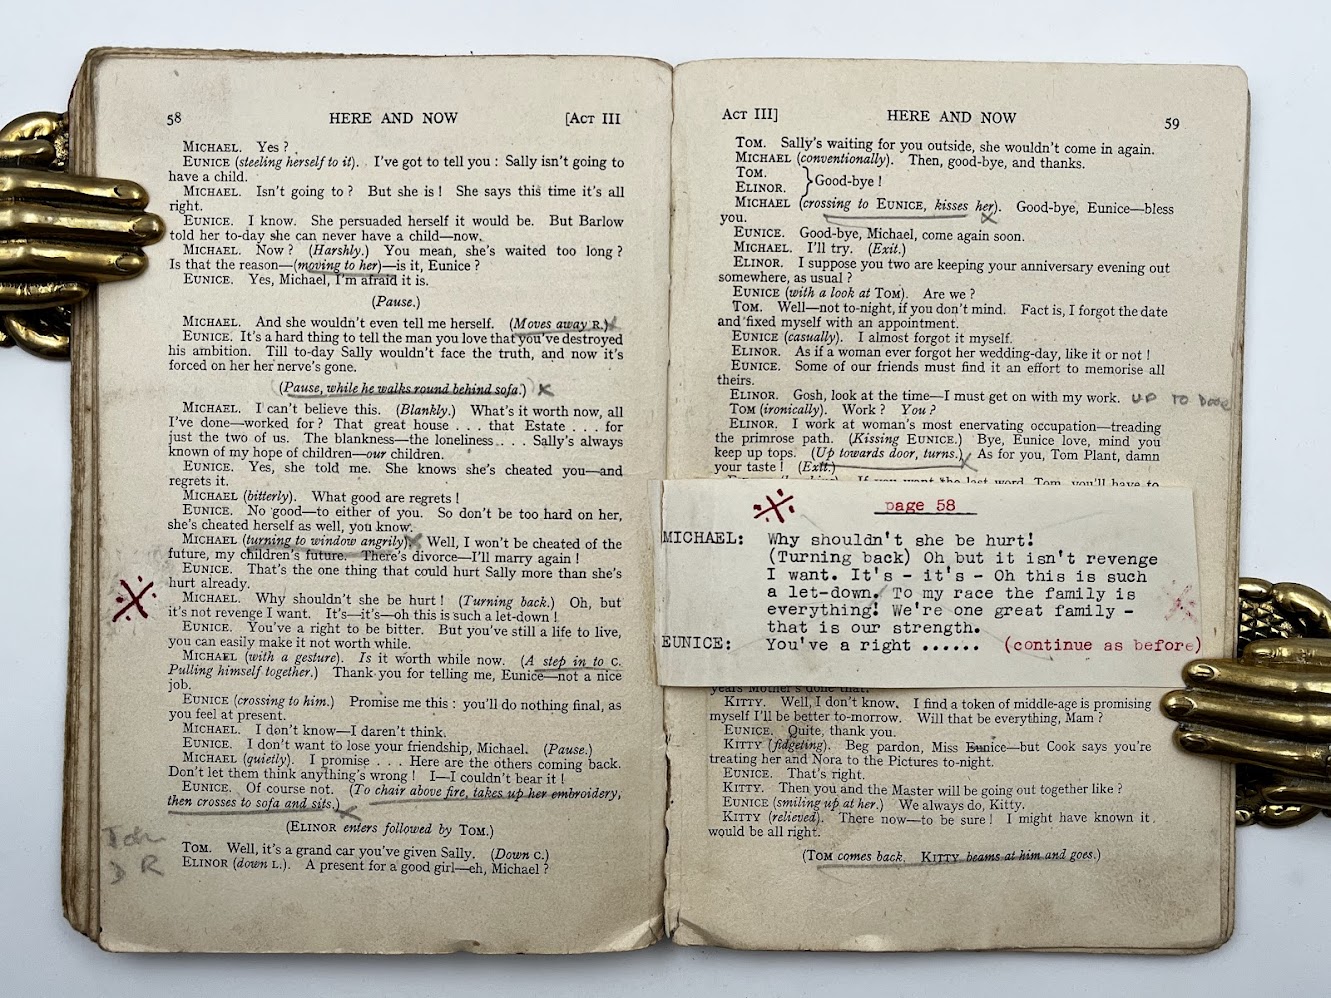 58 HERE AND NOW [ACT III
MICHAEL. Yes ?
EUNICE (steeling herself to it). I've got to tell you : Sally isn't going to
have a child.
MICHAEL. Isn't going to ? But she is ! She says this time it's all
right.
EUNICE. I know. She persuaded herself it would be. But Barlow
told her to-day she can never have a child—now.
MICHAEL. Now ? (Harshly.) You mean, she's waited too long ?
Is that the reason—(moving to her)—is it, Eunice ?
EUNICE. Yes, Michael, I'm afraid it is.
(Pause.)
MICHAEL. And she wouldn't even tell me herself. (Moves away R.)
EUNICE. It's a hard thing to tell the man you love that you've destroyed
his ambition. Till to-day Sally wouldn't face the truth, and now it's
forced on her her nerve's gone.
(Pause, while he walks round behind sofa.) x
MICHAEL. I can't believe this. (Blankly.) What's it worth now, all
I've done—worked for ? That great house . . . that Estate . . . for
just the two of us. The blankness—the loneliness . . . Sally's always
known of my hope of children—our children.
EUNICE. Yes, she told me. She knows she's cheated you—and
regrets it.
MICHAEL (bitterly). What good are regrets !
EUNICE. No good—to either of you. So don't be too hard on her,
she's cheated herself as well, you know.
MICHAEL (turning to window angrily). x Well, I won't be cheated of the
future, my children's future. There's divorce—I'll marry again !
EUNICE. That's the one thing that could hurt Sally more than she's
hurt already.
MICHAEL. Why shouldn't she be hurt ! (Turning back.) Oh, but
it's not revenge I want. It's—it's—oh this is such a let-down !
EUNICE. You've a right to be bitter. But you've still a life to live,
you can easily make it not worth while.
MICHAEL (with a gesture). Is it worth while now. (A step in to C.
Pulling himself together.) Thank you for telling me, Eunice—not a nice
job.
EUNICE (crossing to him.) Promise me this : you'll do nothing final, as
you feel at present.
MICHAEL. I don't know—I daren't think.
EUNICE. I don't want to lose your friendship, Michael. (Pause.)
MICHAEL (quietly). I promise . . . Here are the others coming back.
Don't let them think anything's wrong ! I—I couldn't bear it !
EUNICE. Of course not. (To chair above fire, takes up her embroidery,
then crosses to sofa and sits.) x
(ELINOR enters followed by TOM.)
TOM. Well, it's a grand car you've given Sally. (Down C.)
ELINOR (down L.). A present for a good girl—eh, Michael ?
D R
ACT III] HERE AND NOW 59
TOM. Sally's waiting for you outside, she wouldn't come in again.
MICHAEL (conventionally). Then, good-bye, and thanks.
TOM.
ELINOR. }Good-bye !
MICHAEL (crossing to EUNICE, kisses her). x Good-bye, Eunice—bless
you.
EUNICE. Good-bye, Michael, come again soon.
MICHAEL. I'll try. (Exit.)
ELINOR. I suppose you two are keeping your anniversary evening out
somewhere, as usual ?
EUNICE (with a look at TOM). Are we ?
TOM. Well—not to-night, if you don't mind. Fact is, I forgot the date
and fixed myself with an appointment.
EUNICE (casually). I almost forgot it myself.
ELINOR. As if a woman ever forgot her wedding-day, like it or not !
EUNICE. Some of our friends must find it an effort to memorise all
theirs.
ELINOR. Gosh, look at the time—I must get on with my work. UP TO DOOR
TOM (ironically). Work ? You ?
ELINOR. I work at woman's most enervating occupation—treading
the primrose path. (Kissing EUNICE.) Bye, Eunice love, mind you
keep up tops. (Up towards door, turns.) x As for you, Tom Plant, damn
your taste ! (Exit.)
If you want the last word, Tom, you'll have to
page 58
MICHAEL: Why shouldn't she be hurt!
(Turning back) Oh but it isn't revenge
I want. It's - it's - Oh this is such
a let-down. To my race the family is
everything! We're one great family -
that is our strength.
EUNICE: You've a right ...... (continue as before)
years Mother's done that.
KITTY. Well, I don't know. I find a token of middle-age is promising
myself I'll be better to-morrow. Will that be everything, Mam ?
EUNICE. Quite, thank you.
KITTY (fidgeting). Beg pardon, Miss Eunice—but Cook says you're
treating her and Nora to the Pictures to-night.
EUNICE. That's right.
KITTY. Then you and the Master will be going out together like ?
EUNICE (smiling up at her.) We always do, Kitty.
KITTY (relieved). There now—to be sure ! I might have known it
would be all right.
(TOM comes back. KITTY beams at him and goes.)